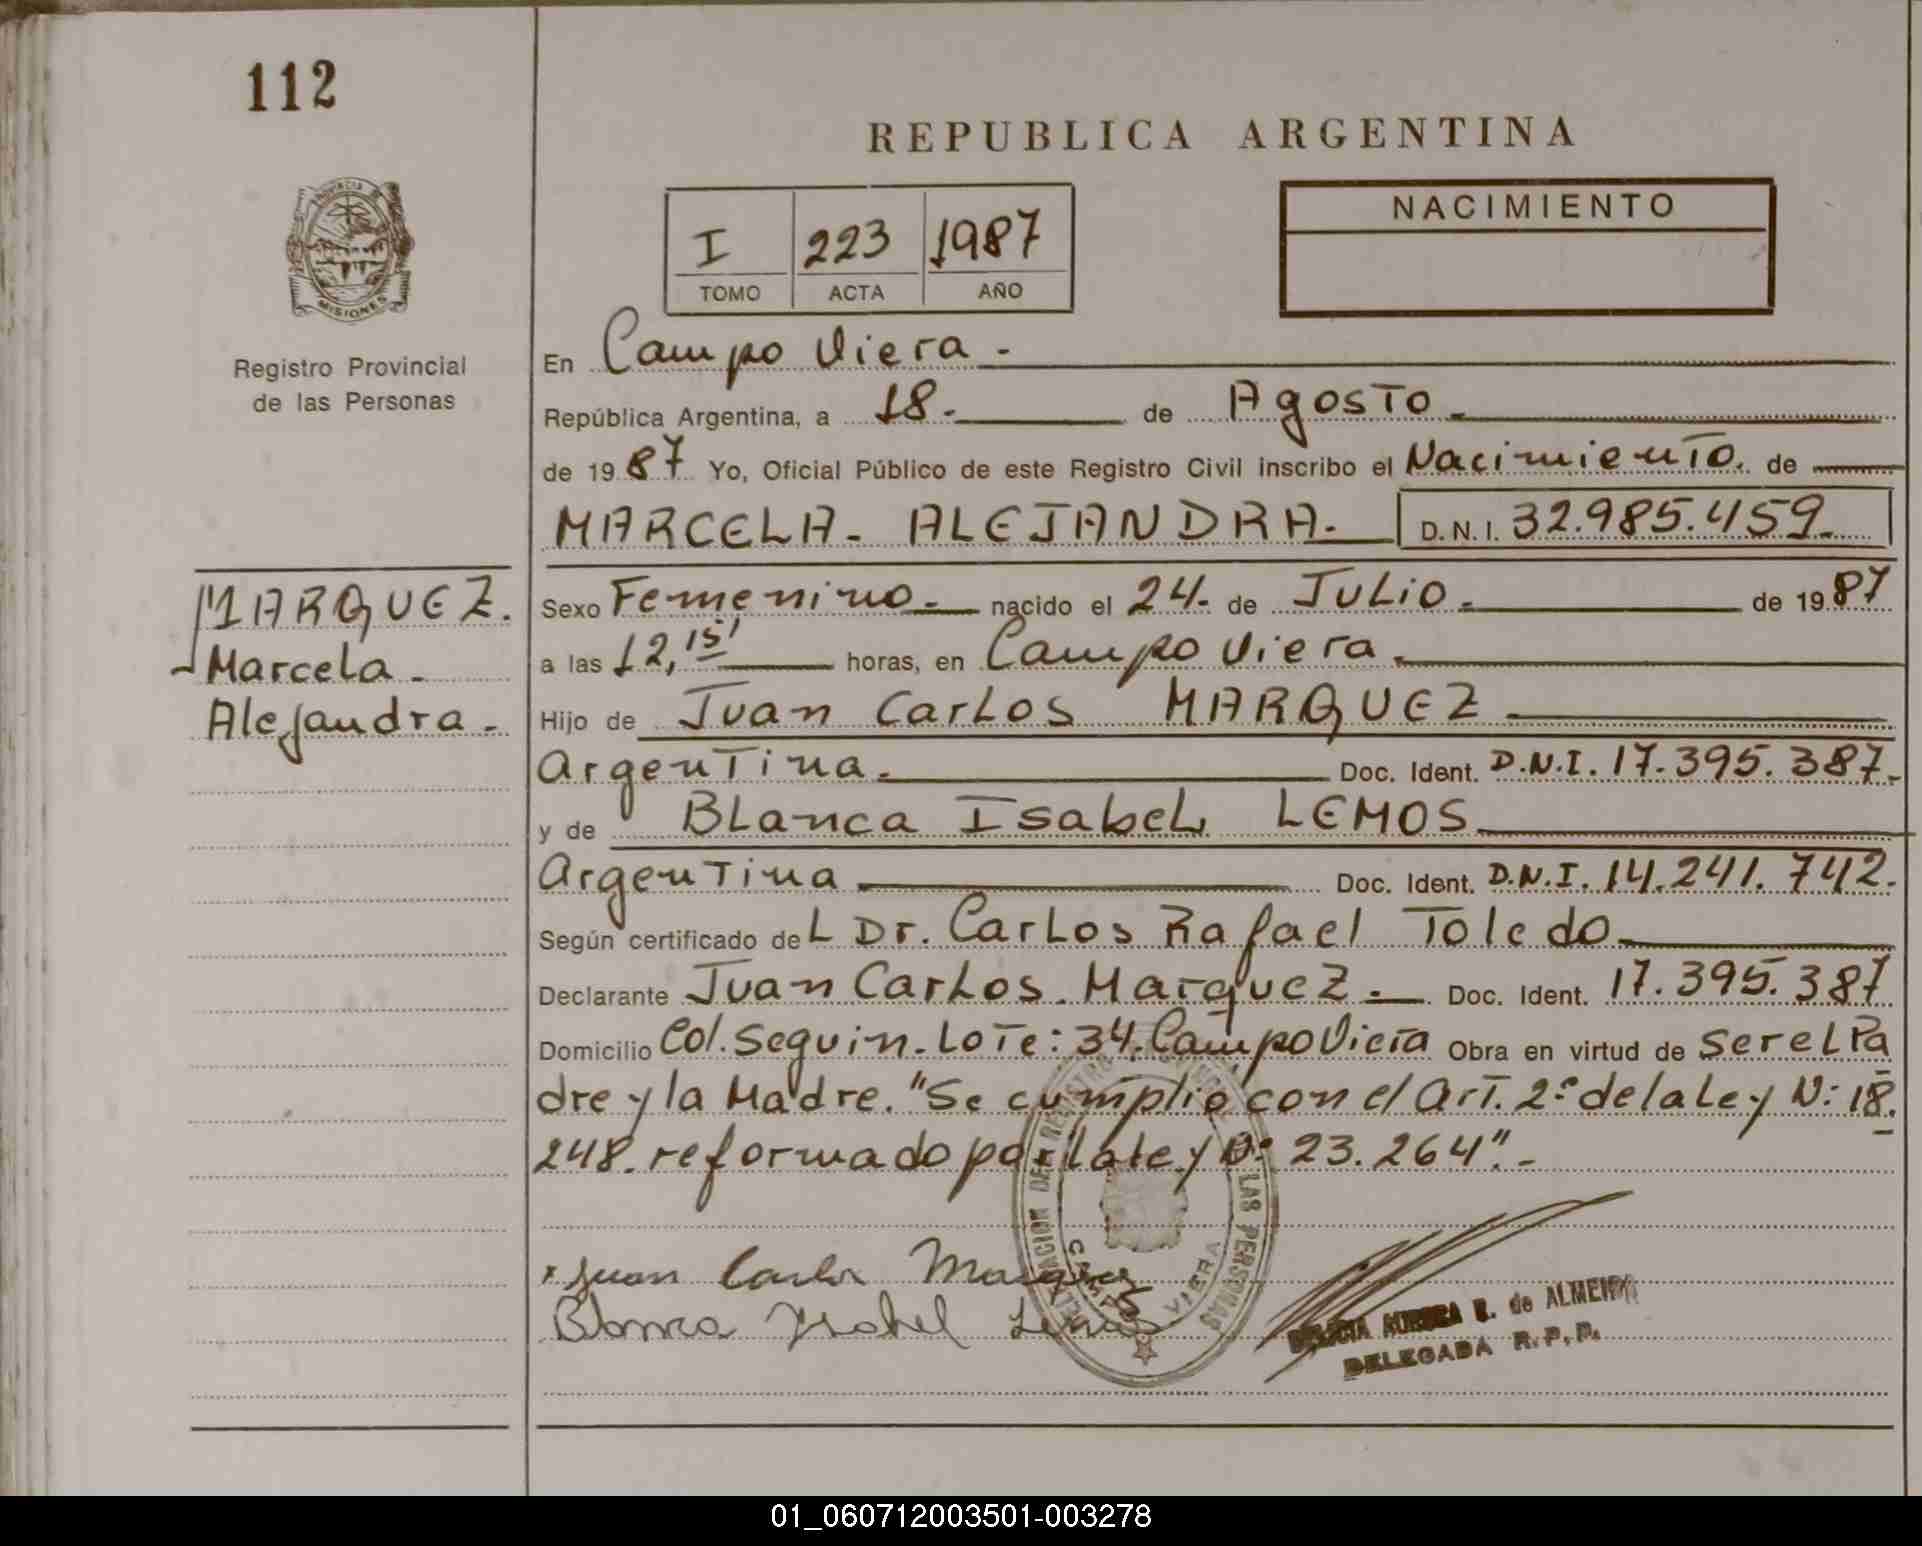 112
REPUBLICA ARGENTINA
PROVINCIA DE
MISIONES
Registro Provincial
de las Personas
I 223 1987
TOMO ACTA AÑO
NACIMIENTO
En Campo Viera.-
República Argentina, a 18.- de Agosto.-
de 1987 Yo, Oficial Público de este Registro Civil inscribo el Nacimiento. de
MARCELA- ALEJANDRA.- D.N.I. 32.985.459.-
MARQUEZ.
Marcela.-
Alejandra.-
Sexo Femenino.- nacido el 24.- de Julio.- de 1987
a las 12,15' horas, en Campo Viera.-
Hijo de Juan Carlos MARQUEZ
Argentina.- Doc. Ident. D.N.I. 17.395.387.-
y de Blanca Isabel LEMOS
Argentina Doc. Ident. D.N.I. 14.241.742.
Según certificado del Dr. Carlos Rafael Toledo
Declarante Juan Carlos Marquez.- Doc. Ident. 17.395.387
Domicilio Col. Seguin. Lote: 34. Campo Viera Obra en virtud de ser el Pa
dre y la Madre. "Se cumplió con el Art. 2º de la Ley N: 18.
248. reformado por la ley Nº 23.264".-
Juan Carlos Marquez
Blanca Ysabel Lemos
DELEGACION DEL REGISTRO LAS PERSONAS
CAMPO VIERA
R. de ALMEIDA
DELEGADA R.P.P.
01_060712003501-003278